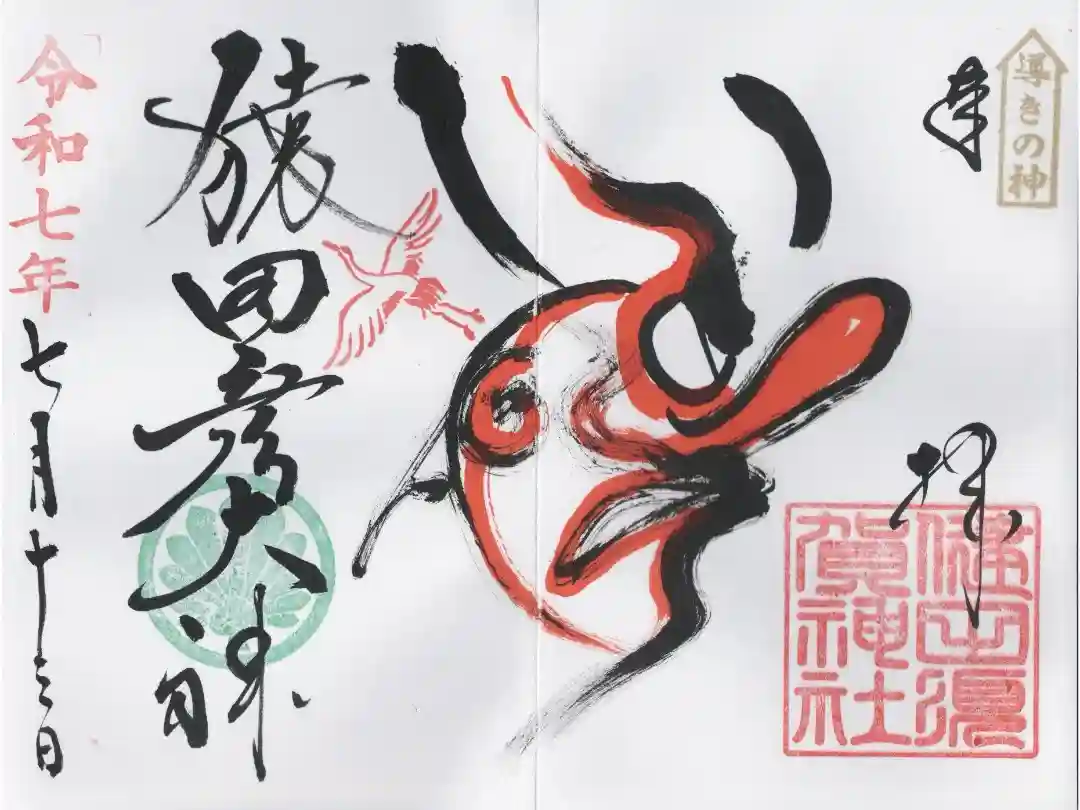 導きの神
奉拝
健田須賀神社
猿田彦大神
令和七年七月十三日